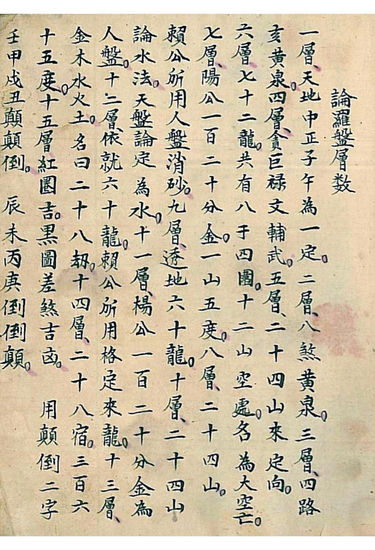 論羅盤層数
一層、天地中正子午為一定。二層、八煞黄泉。三層、四路
亥黄泉。四層、貪巨禄文輔武。五層、二十四山來定向。
六層七十二龍。共有八干四圍。十二山空處。名為大空亡。
七層、陽公一百二十分金。一山五度。八層、二十四山。
賴公所用人盤消砂。九層透地六十龍。十層、二十四山
論水法。天盤論定為水。十一層楊公一百二十分金為
人盤。十二層、依就六十龍。賴公所用格定來龍。十三層、
金木水火土。名曰二十八刼。十四層、二十八宿。三百六
十五度。十五層紅圈吉。黒圖差煞吉凶。 用顛倒二字
壬甲戌丑顛顛倒。辰未丙庚倒倒顛。